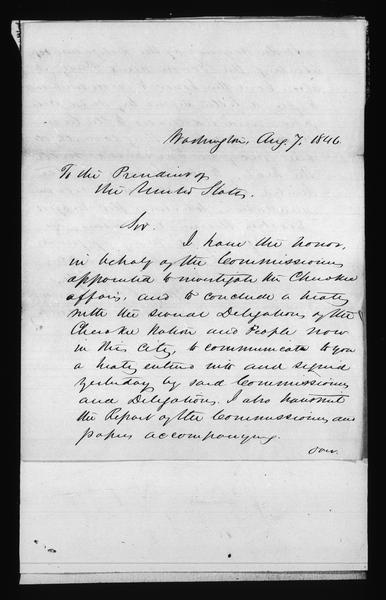 Washington, Aug 7, 1846.
To the President of
the United States.
Sir
I have the honor,
in behalf of the Commissioners
appointed to investigate the Cherokee
affairs, and to conclude a treaty
with the several Delegations of the
Cherokee Nation and People now
in this City, to communicate to you
a treaty entered into and signed
yesterday by said Commissioners
and Delegations. I also transmit
the Report of the Commissioners and
papers accompanying.